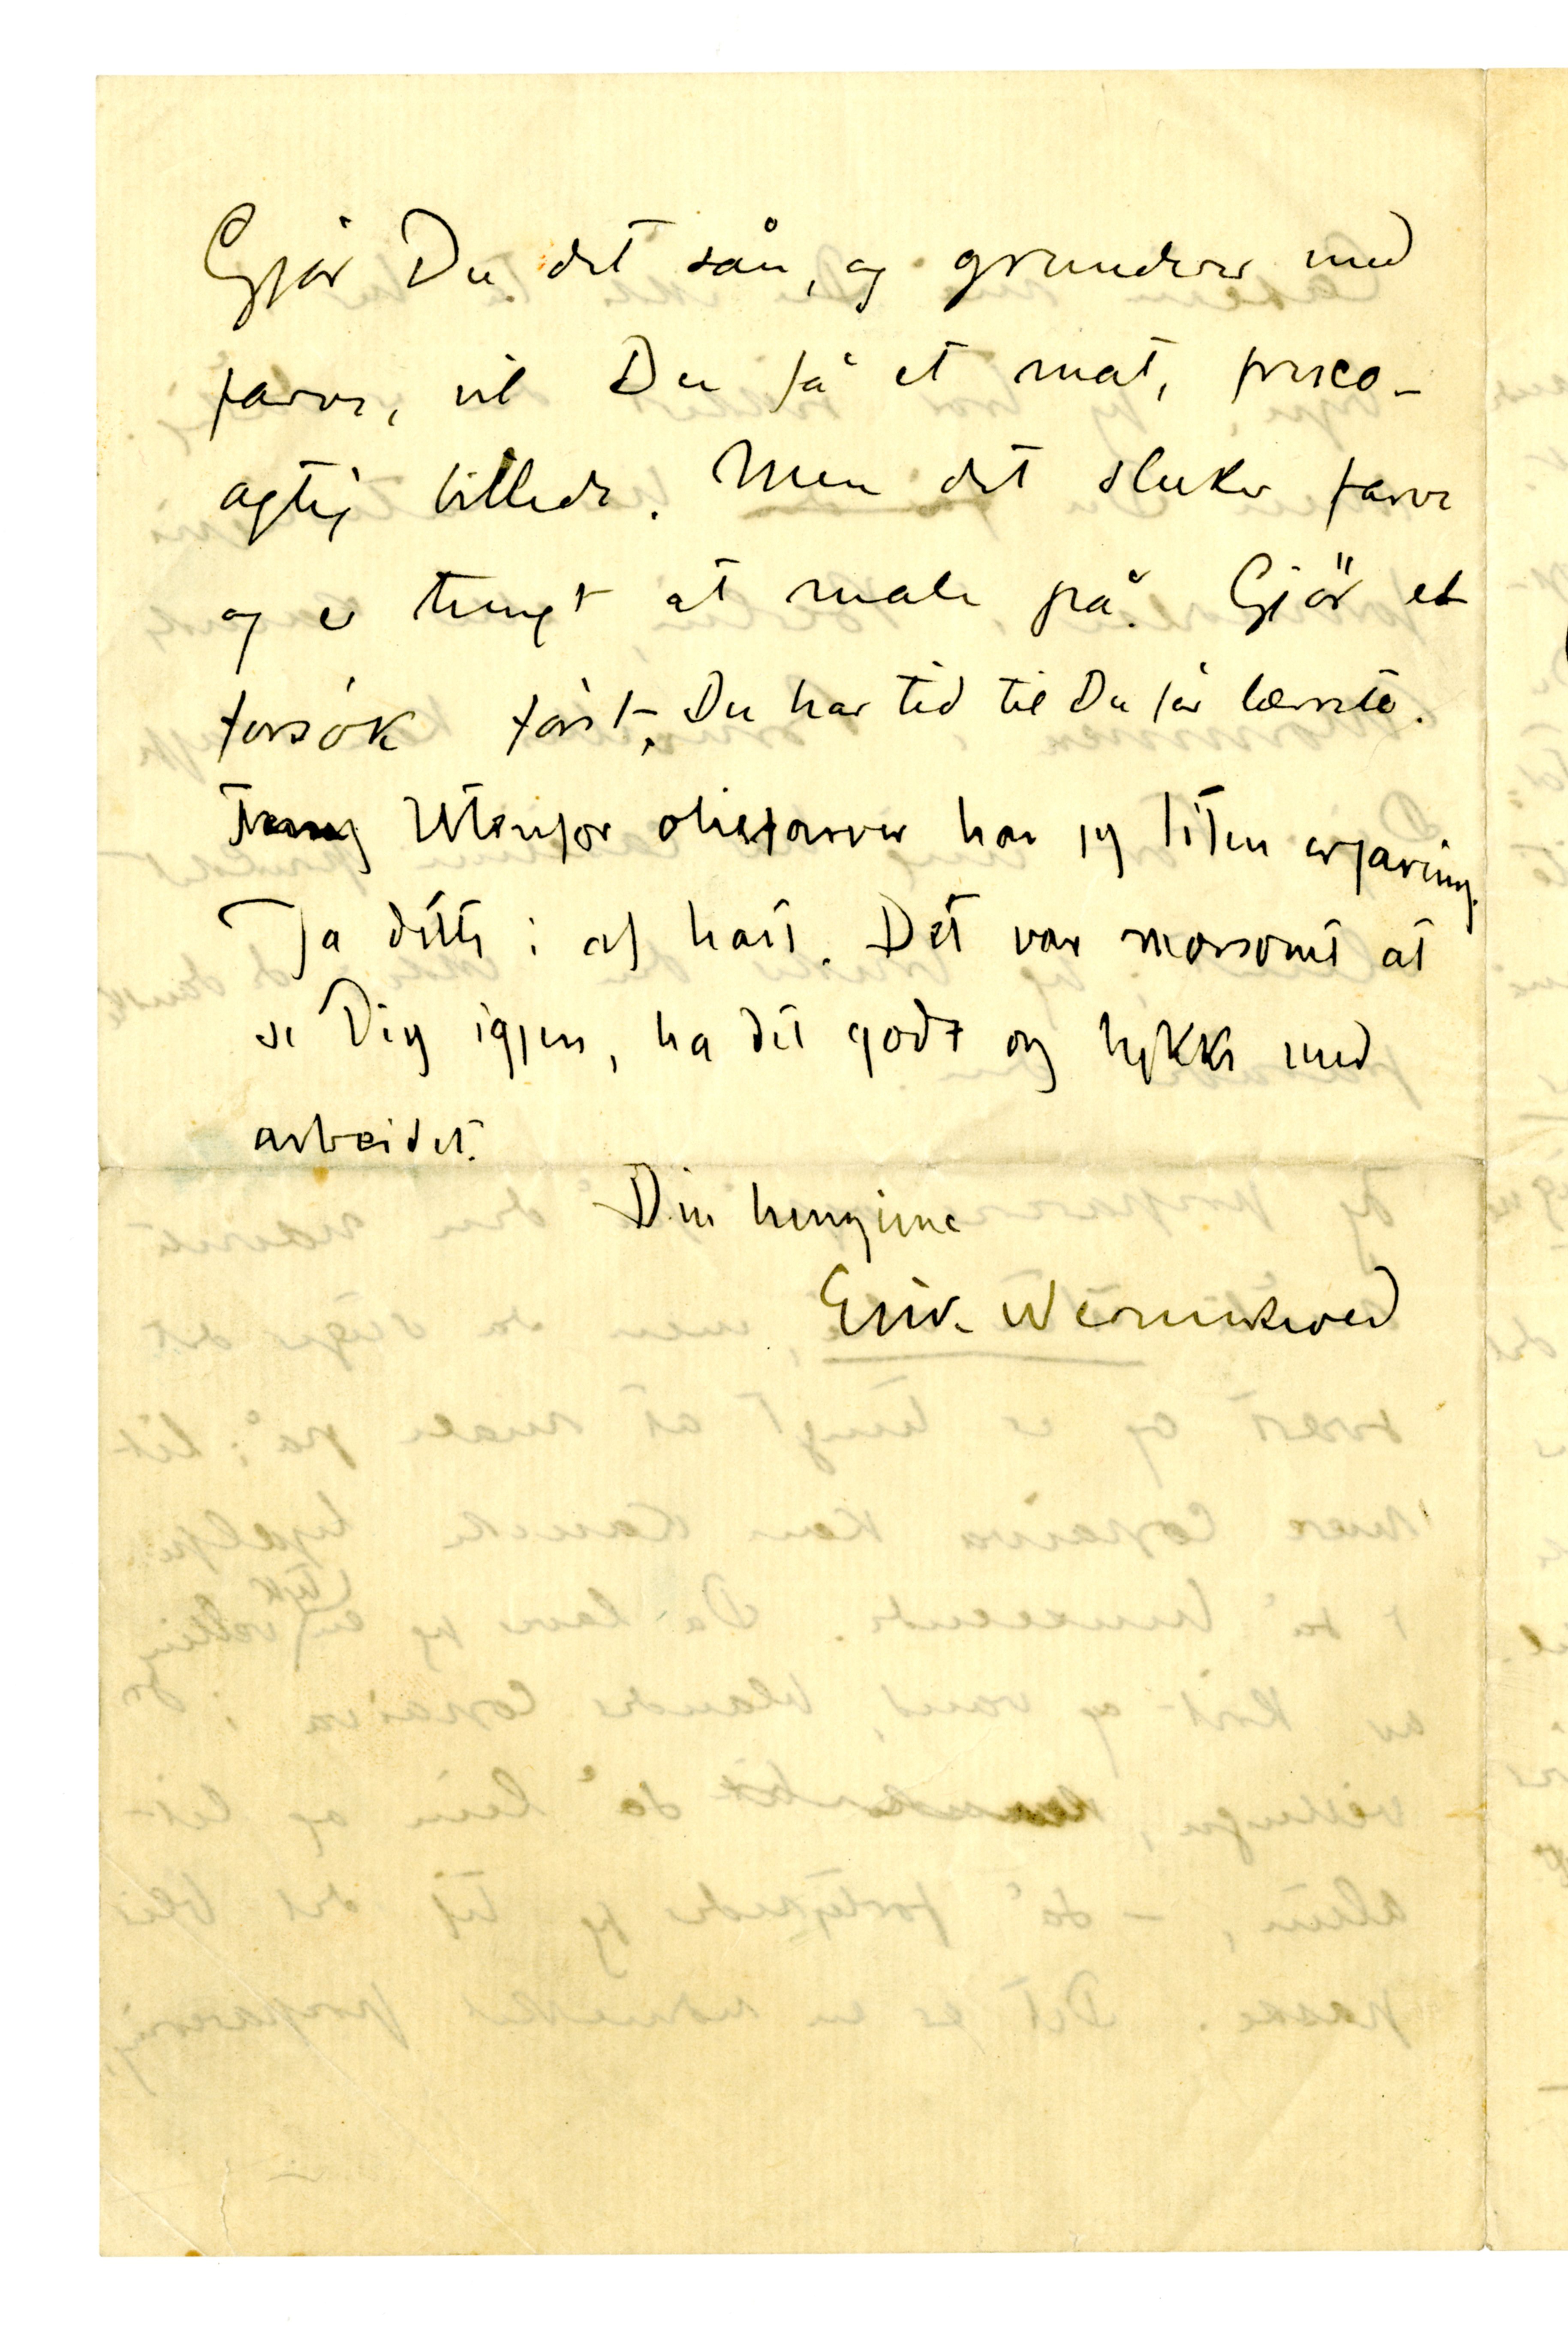 Gjör Du det sån, og grunderer med
farve, vil Du få et mat, fresco-
agtig billede. Men det sluker farve
og er tungt at male på. Gjör et
forsök först, Du har tid til Du får lærretet.
Utenfor oliefarver har jeg liten erfaring.
Ta dette i al hast. Det var morsomt at
se Dig igjen, ha det godt og lykke med
arbeidet.
Din hengivne
Erik Werenskiold